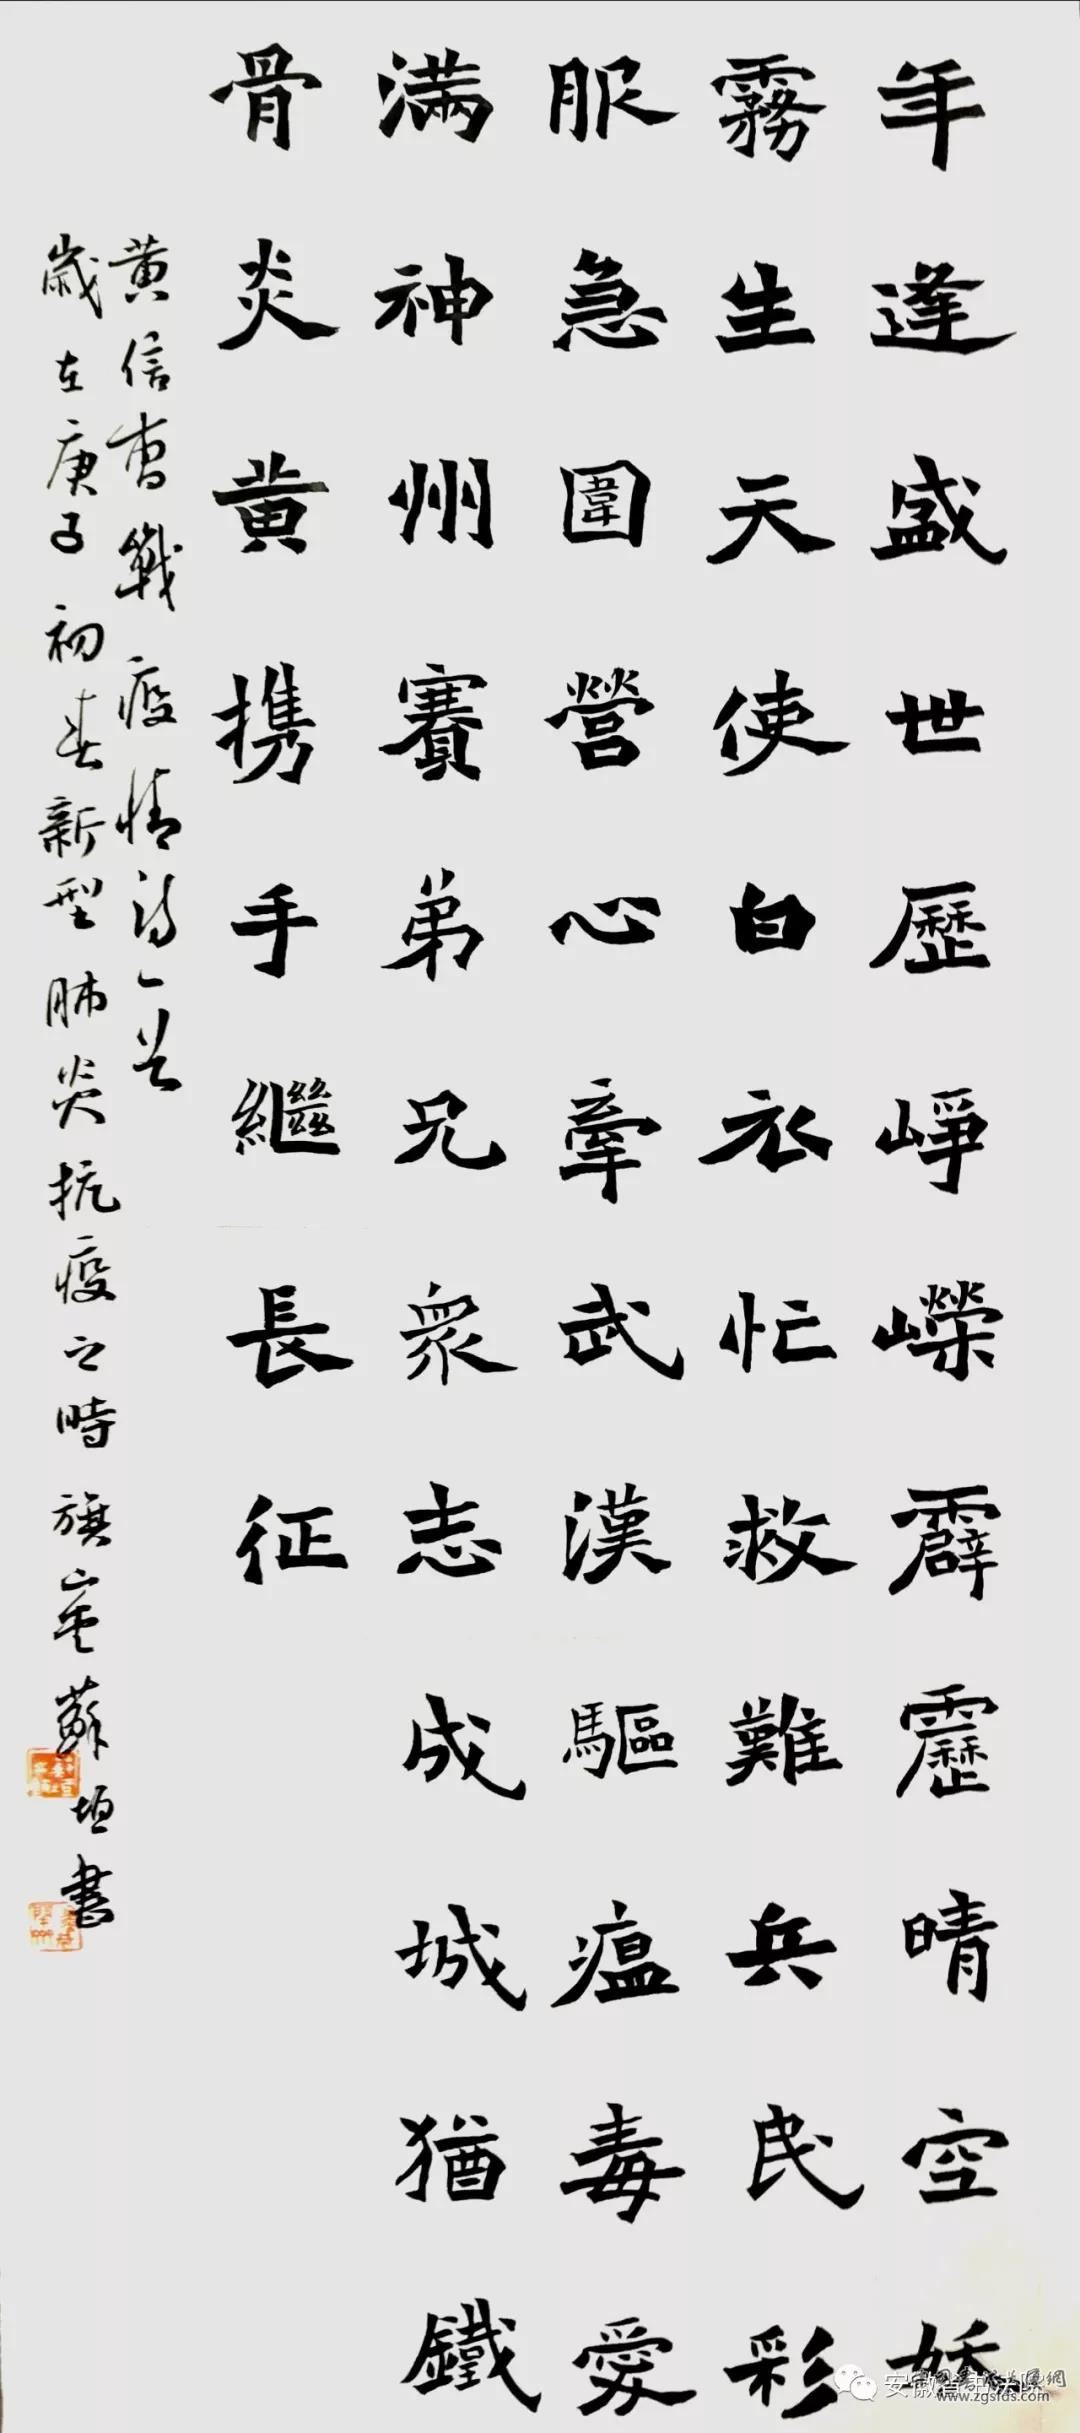 年逢盛世歷崢嶸霹靂晴空妖
霧生天使白衣忙救難兵民彩
服急圍營心牽武漢驅瘟毒愛
滿神州賽弟兄衆志成城猶鐵
骨炎黄携手繼長征
黄信曹戰疫情詩一首
歲在庚子初春新型肺炎抗疫之時旗蘇垣書
安徽省书法院
www.zgsfds.com